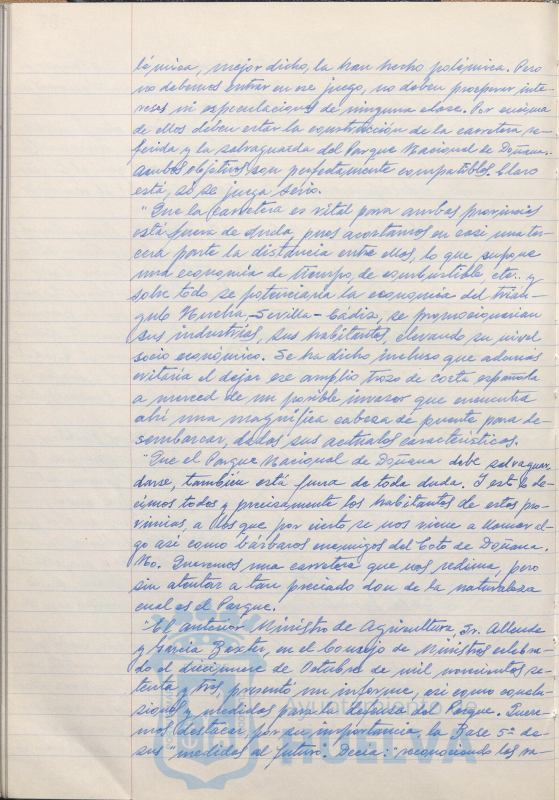 lémica, mejor dicho, la han hecho polémica. Pero
no debemos entrar en ese juego, no deben prosperar inte-
reses ni especulaciones de ninguna clase. Por encima
de ellos deben estar la construcción de la carretera re-
ferida y la salvaguarda del Parque Nacional de Doñana.
Ambos objetivos son perfectamente compatibles. Claro
está, si se juega serio.
"Que la carretera es vital para ambas provincias
está fuera de duda, pues acortamos en casi una ter-
cera parte la distancia entre ellas, lo que supone
una economía de tiempo, de combustible, etc. y
sobre todo se potenciaría la economía del trián-
gulo Huelva-Sevilla-Cádiz, se promocionarían
sus industrias, sus habitantes, elevando su nivel
socio económico. Se ha dicho incluso que además
evitaría el dejar ese amplio trozo de costa española
a merced de un posible invasor que encuentra
ahí una magnífica cabeza de puente para de-
sembarcar, dadas sus actuales características.
"Que el Parque Nacional de Doñana debe salvaguar-
darse, también está fuera de toda duda. Y esto lo de-
cimos todos y precisamente los habitantes de estas pro-
vincias, a los que por cierto se nos viene a llamar al-
go así como bárbaros enemigos del Coto de Doñana.
No. Queremos una carretera que nos redima, pero
sin atentar a tan preciado don de la naturaleza
cual es el Parque.
"El anterior Ministro de Agricultura, Sr. Allende
y García Baxter, en el Consejo de Ministros celebra-
do el diecinueve de Octubre de mil novecientos se-
tenta y tres, presentó un informe, así como conclu-
siones y medidas para la defensa del Parque. Quere-
mos destacar, por su importancia, la Base 5ª de
sus "medidas al futuro". Decía: "reconociendo las ne-
Ayuntamiento de
HUELVA